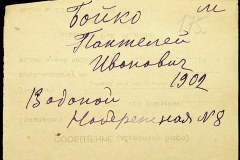 Бойко м
Пантелей
Иванович
1902
Водопой
Набережная №8